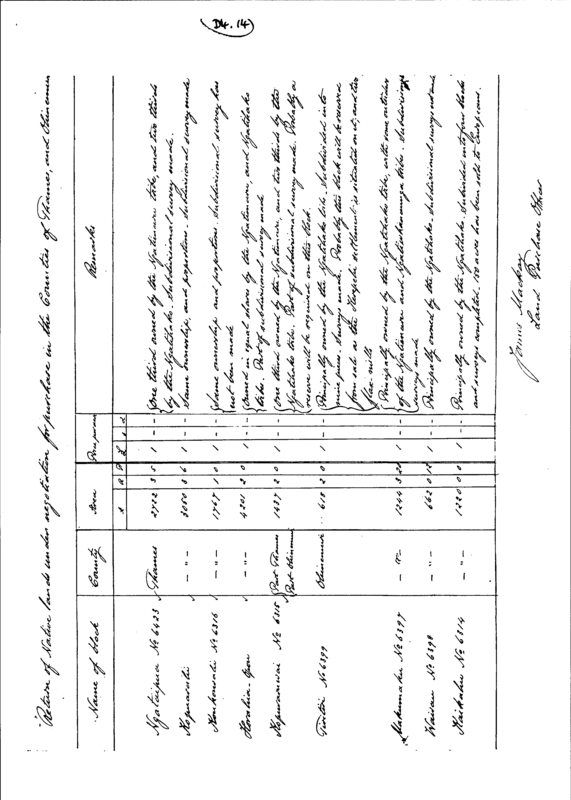 D4.14
Return of Native lands under negotiation for purchase in the Counties of Thames, and Ohinemuri
Name of block County Area Price per acre Remarks
A R P £ s d
Ngataipua No 6423 Thames 2722 3 5 1 - - One third owned by the Ngatimaru tribe, and two thirds
by the Ngatihako. Subdivisional survey made.
Kopuarahi - " - 3050 3 6 1 - - Same ownership, and proportions. Subdivisional survey made
6316 - " - 1767 1 0 1 - - Same ownership and proportions. Subdivisional survey has
not been made
- " - 4201 2 0 1 - - Owned in equal shares by the Ngatimaru, and Ngatihako
tribe. Part of subdivisional survey made
No 6315 Part Thames 1437 2 0 1 - - One third owned by the Ngatimaru, and two thirds by the
Part Ohinemuri Ngatihako tribe. Part of subdivisional survey made. Probably a
will be required on this block.
No 6399 Ohinemuri 613 2 0 1 - - Principally owned by the Ngatihako tribe. Subdivided into
nine pieces. Surveys made. Probably this block will be reserved
from sale as the settlement is situated on it, and two
flax mills
Makumaku No 6397 - " - 1244 3 24 1 - - Principally owned by the Ngatihako tribe, with some outsiders
of the Ngatimaru and tribes. Subdivisional
survey made
Wairau No 6398 - " - 662 0 12 1 - - Principally owned by the Ngatihako. Subdivisional survey not made
Kaikahu No 6314 - " - 1220 0 0 1 - - Principally owned by the Ngatihako. Subdivided into four blocks
and survey completed. 500 acres has been sold to Europeans.
James Mackay
Land Purchase Officer